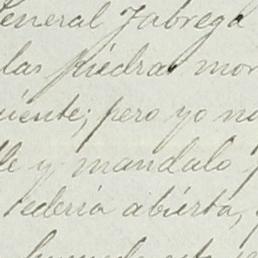 General Fabrega
las piedras mor
uiente; pero yo no
lle y mandalo
tederia abierta,